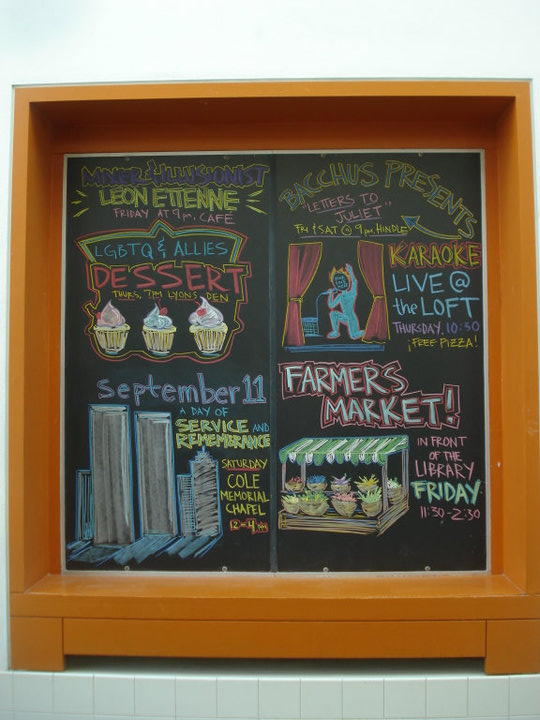 MINER ILLUSIONIST
LEON ETIENNE
FRIDAY AT 9 P.M. CAFÉ
LGBTQ & ALLIES
DESSERT
THURS, 7PM LYONS DEN
September 11
A DAY OF
SERVICE AND
REMEMBRANCE
SATURDAY
COLE
MEMORIAL
CHAPEL
12-4 PM
BACCHUS PRESENTS
"LETTERS TO
JULIET"
FRI & SAT @ 9 PM, HINDLE
KARAOKE
LIVE @
the LOFT
THURSDAY, 10:30
¡FREE PIZZA!
FARMERS
MARKET!
IN FRONT
OF THE
LIBRARY
FRIDAY
11:30-2:30